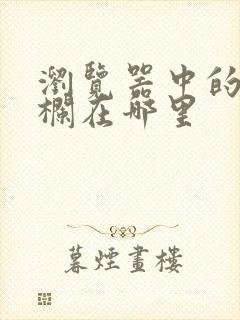 瀏覽器中的
欄在哪里
暮煙畫樓